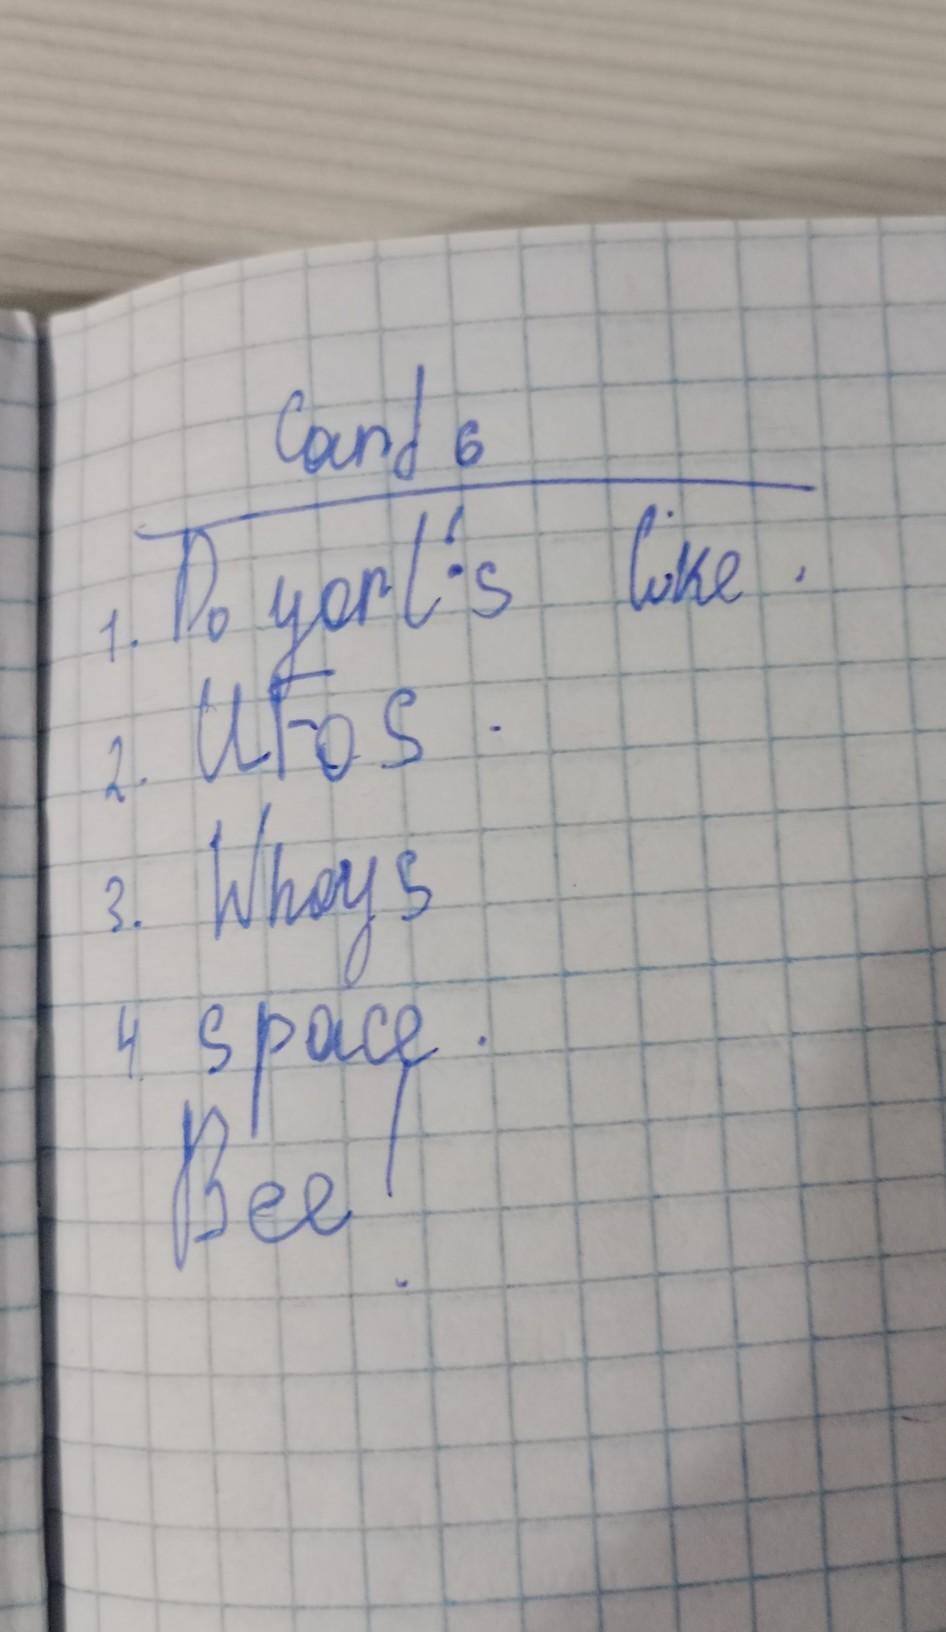 Card 6
1. Do yorl's like.
2. UFOS.
3. Whays
4 space.
Bee!